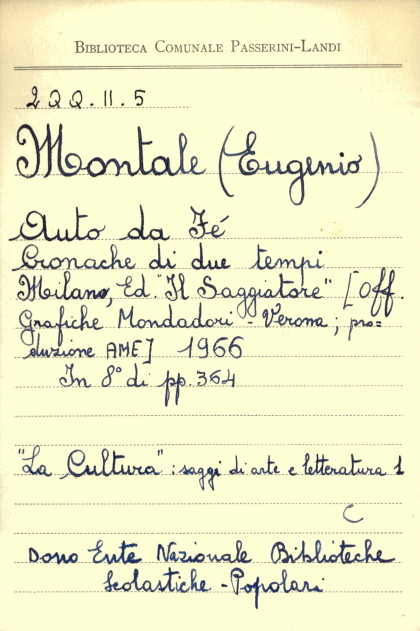 BIBLIOTECA COMUNALE PASSERINI-LANDI
2QQ.II.5
Montale (Eugenio)
Auto da Fé
Cronache di due tempi
Milano, Ed. "Il Saggiatore" [Off.
Grafiche Mondadori - Verona; pro=
duzione AME] 1966
In 8° di pp. 364
"La Cultura": saggi di arte e letteratura 1
C
Dono Ente Nazionale Biblioteche
Scolastiche - Popolari